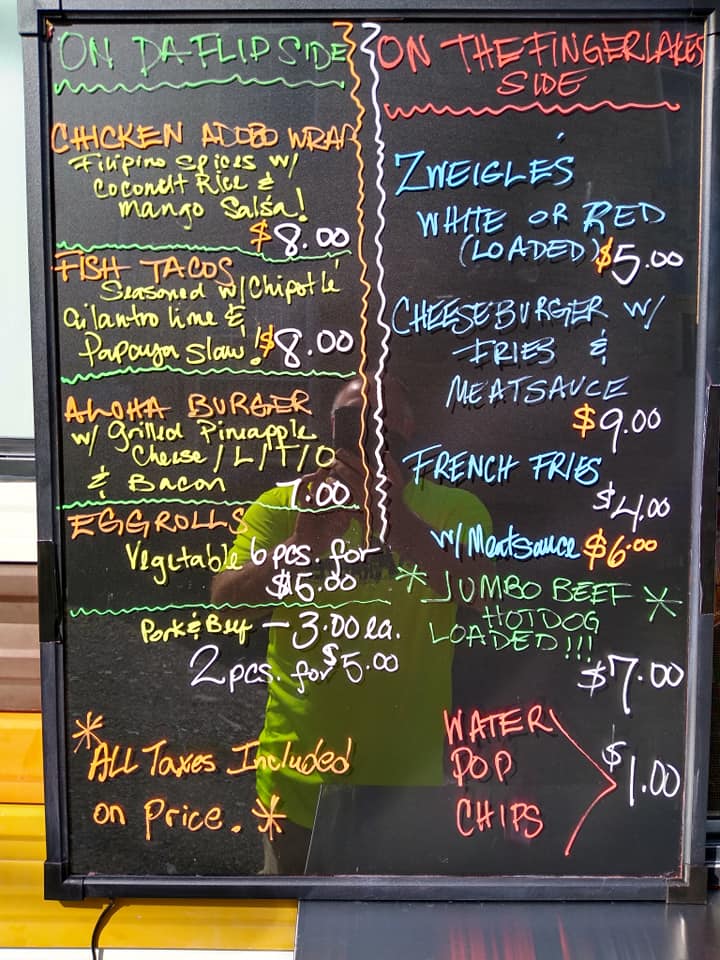 ON DA FLIP SIDE
CHICKEN ADOBO WRAP
Filipino Spices w/
Coconut Rice &
Mango Salsa!
$8.00
FISH TACOS
Seasoned w/Chipotle
Cilantro lime &
Papaya Slaw! $8.00
ALOHA BURGER
w/ Grilled Pineapple
Cheese / L / T / O
& Bacon
7.00
EGGROLLS
Vegetable 6 pcs. for
$5.00
Pork & Beef - 3.00 ea.
2 pcs. for $5.00
*ALL Taxes Included
on Price. *
ON THE FINGERLAKES
SIDE
ZWEIGLES
WHITE OR RED
(LOADED) $5.00
CHEESEBURGER W/
FRIES &
MEATSAUCE
$9.00
FRENCH FRIES
$4.00
w/ Meatsauce $6.00
* JUMBO BEEF *
HOTDOG
LOADED!!!
$7.00
WATER
POP
CHIPS
$1.00